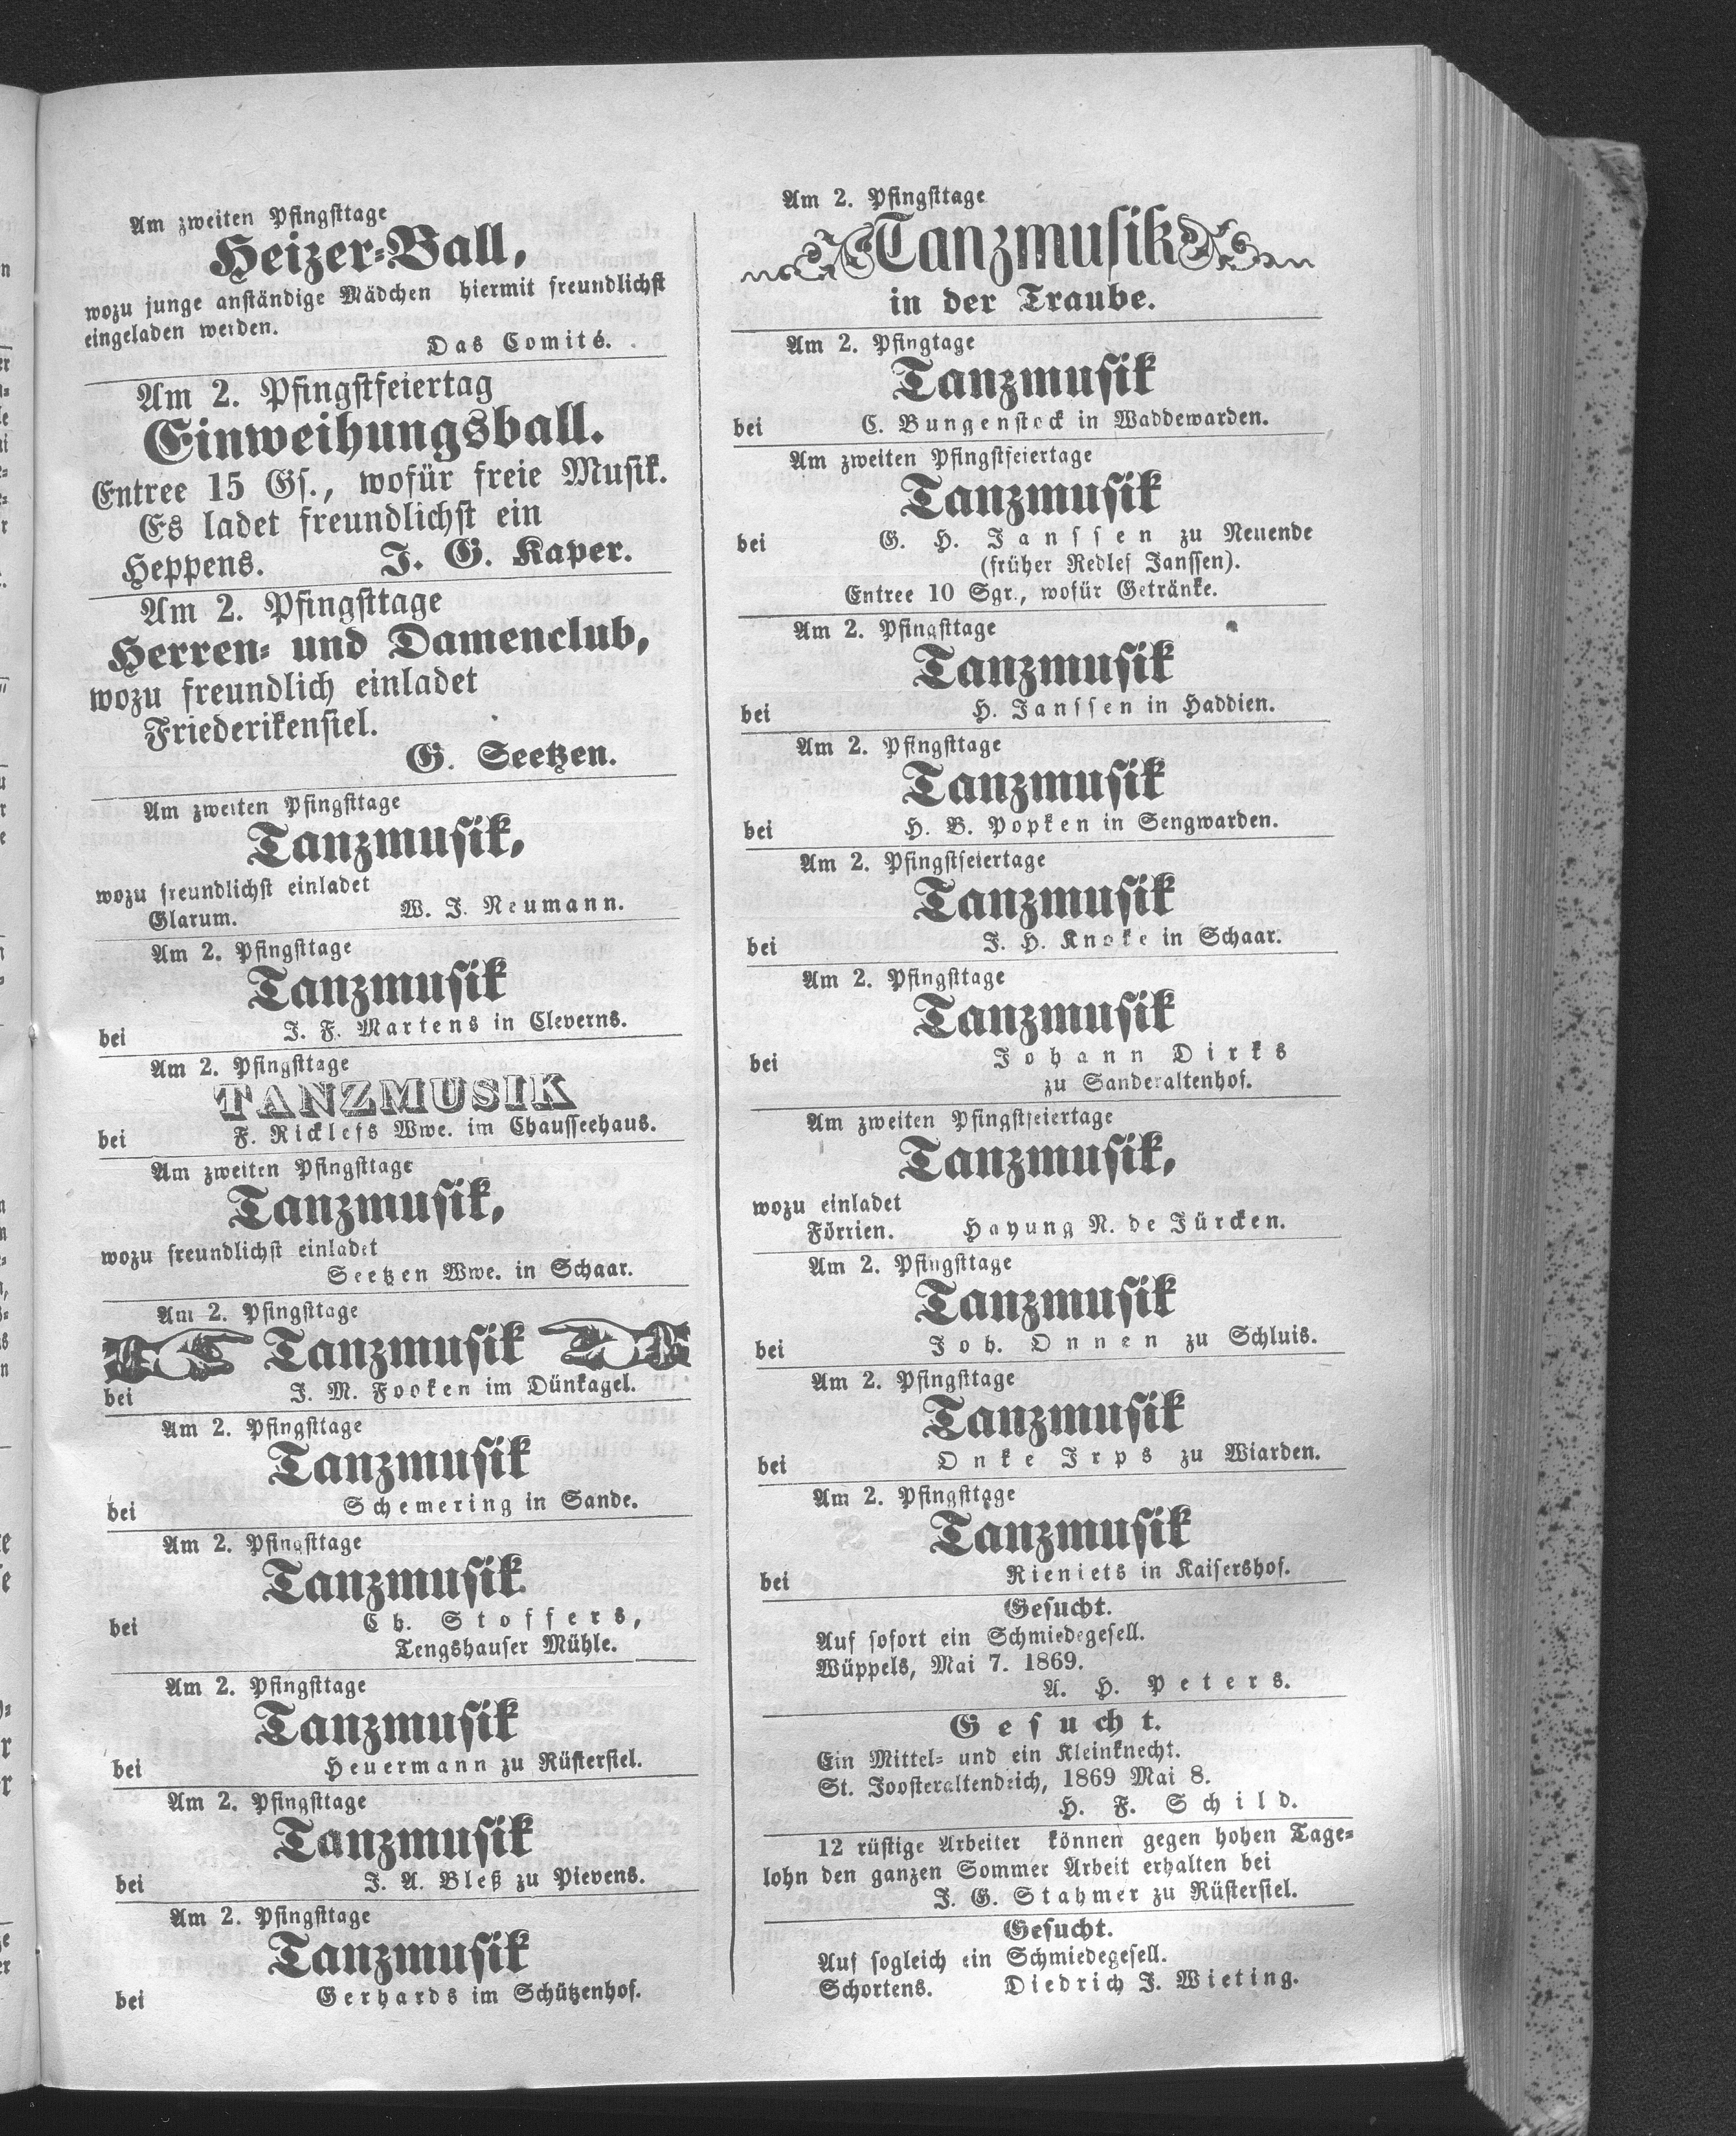 Am zweiten Pfingsttage
Heizer-Ball,
wozu junge anständige Mädchen hiermit freundlichst
eingeladen werden.
Das Comité.
Am 2. Pfingstfeiertag
Einweihungsball.
Entree 15 Gs., wofür freie Musik.
Es ladet freundlichst ein
Heppens. J. G. Kaper.
Am 2. Pfingsttage
Herren- und Damenclub,
wozu freundlich einladet
Friederikensiel.
G. Seetzen.
Am zweiten Pfingsttage
Tanzmusik,
wozu freundlichst einladet
Glarum. W. J. Neumann.
Am 2. Pfingsttage
Tanzmusik
bei J. F. Martens in Cleverns.
Am 2. Pfingsttage
TANZMUSIK
bei F. Ricklefs Wwe. im Chausseehaus.
Am zweiten Pfingsttage
Tanzmusik,
wozu freundlichst einladet
Seetzen Wwe. in Schaar.
Am 2. Pfingsttage
Tanzmusik
bei J. M. Fooken im Dünkagel.
Am 2. Pfingsttage
Tanzmusik
bei Schemering in Sande.
Am 2. Pfingsttage
Tanzmusik
bei Ch. Stoffers,
Tengshauser Mühle.
Am 2. Pfingsttage
Tanzmusik
bei Heuermann zu Rüstersiel.
Am 2. Pfingsttage
Tanzmusik
bei J. A. Bleß zu Pievens.
Am 2. Pfingsttage
Tanzmusik
bei Gerhards im Schützenhof.
Am 2. Pfingsttage
Tanzmusik
in der Traube.
Am 2. Pfingtage
Tanzmusik
bei C. Bungenstock in Waddewarden.
Am zweiten Pfingstfeiertage
Tanzmusik
bei G. H. Janssen zu Neuende
(früher Redlef Janssen).
Entree 10 Sgr., wofür Getränke.
Am 2. Pfingsttage
Tanzmusik
bei H. Janssen in Haddien.
Am 2. Pfingsttage
Tanzmusik
bei H. B. Popken in Sengwarden.
Am 2. Pfingstfeiertage
Tanzmusik
bei J. H. Knoke in Schaar.
Am 2. Pfingsttage
Tanzmusik
bei Johann Dirks
zu Sanderaltenhof.
Am zweiten Pfingstfeiertage
Tanzmusik,
wozu einladet
Förrien. Hayung N. de Jürcken.
Am 2. Pfingsttage
Tanzmusik
bei Joh. Onnen zu Schluis.
Am 2. Pfingsttage
Tanzmusik
bei Onke Irps zu Wiarden.
Am 2. Pfingsttage
Tanzmusik
bei Rieniets in Kaisershof.
Gesucht.
Auf sofort ein Schmiedegesell.
Wüppels, Mai 7. 1869.
A. H. Peters.
Gesucht.
Ein Mittel- und ein Kleinknecht.
St. Joosteraltendeich, 1869 Mai 8.
H. F. Schild.
12 rüstige Arbeiter können gegen hohen Tage-
lohn den ganzen Sommer Arbeit erhalten bei
J. G. Stahmer zu Rüstersiel.
Gesucht.
Auf sogleich ein Schmiedegesell.
Schortens. Diedrich J. Wieting.